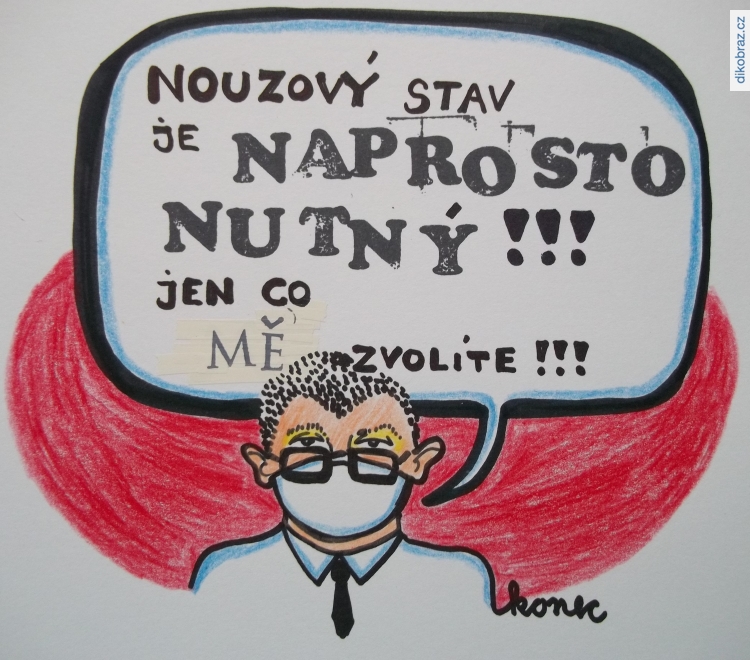 dikobraz.cz
NOUZOVÝ STAV
jE NAPROSTO
NUTNÝ !!!
jEN CO
MĚ ZVOLÍTE !!!
konec